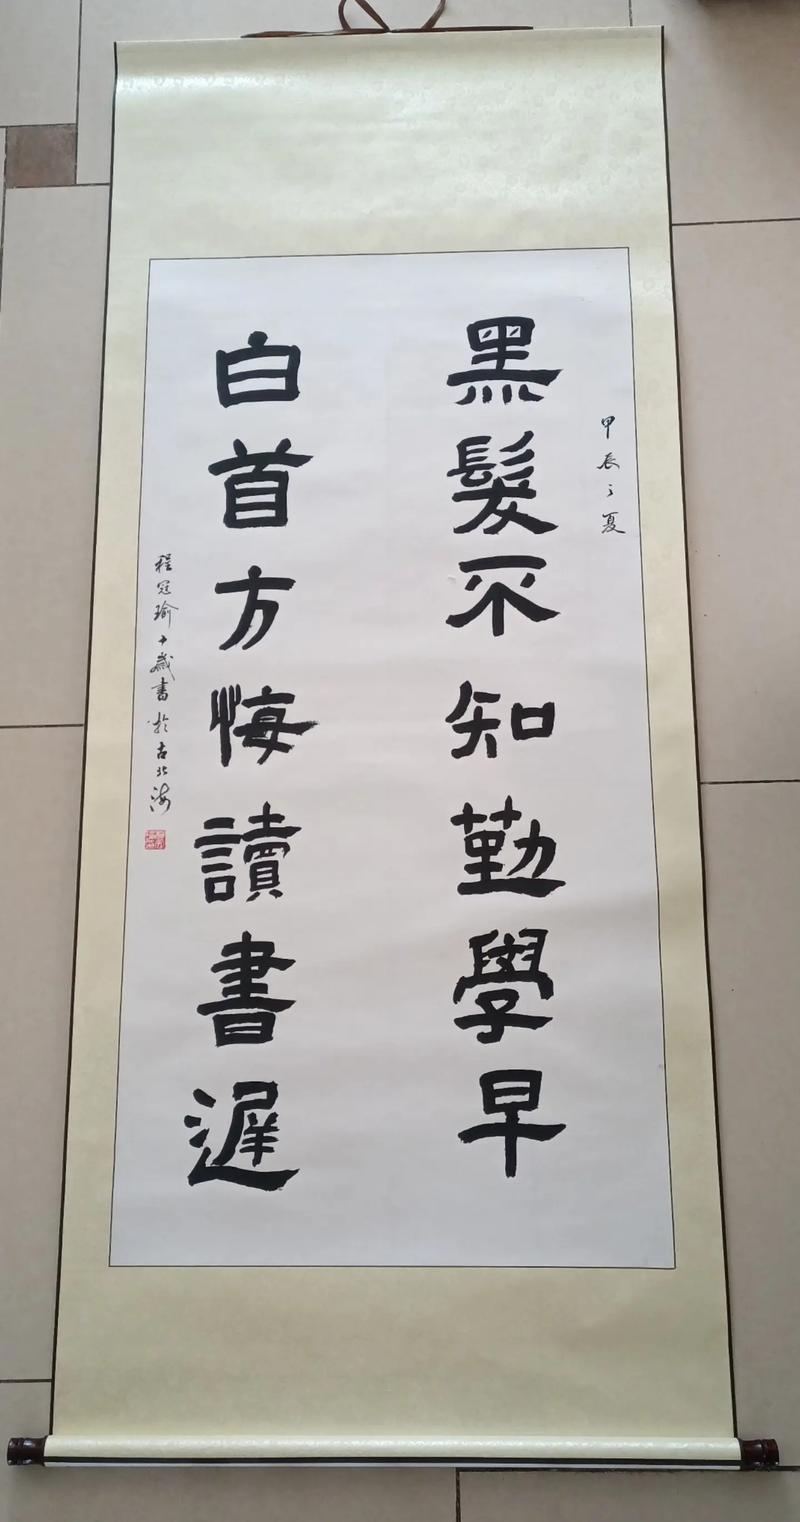 甲辰之夏
黑髮不知勤學早
白首方悔讀書遲
程冠瑜十歲書於古北海